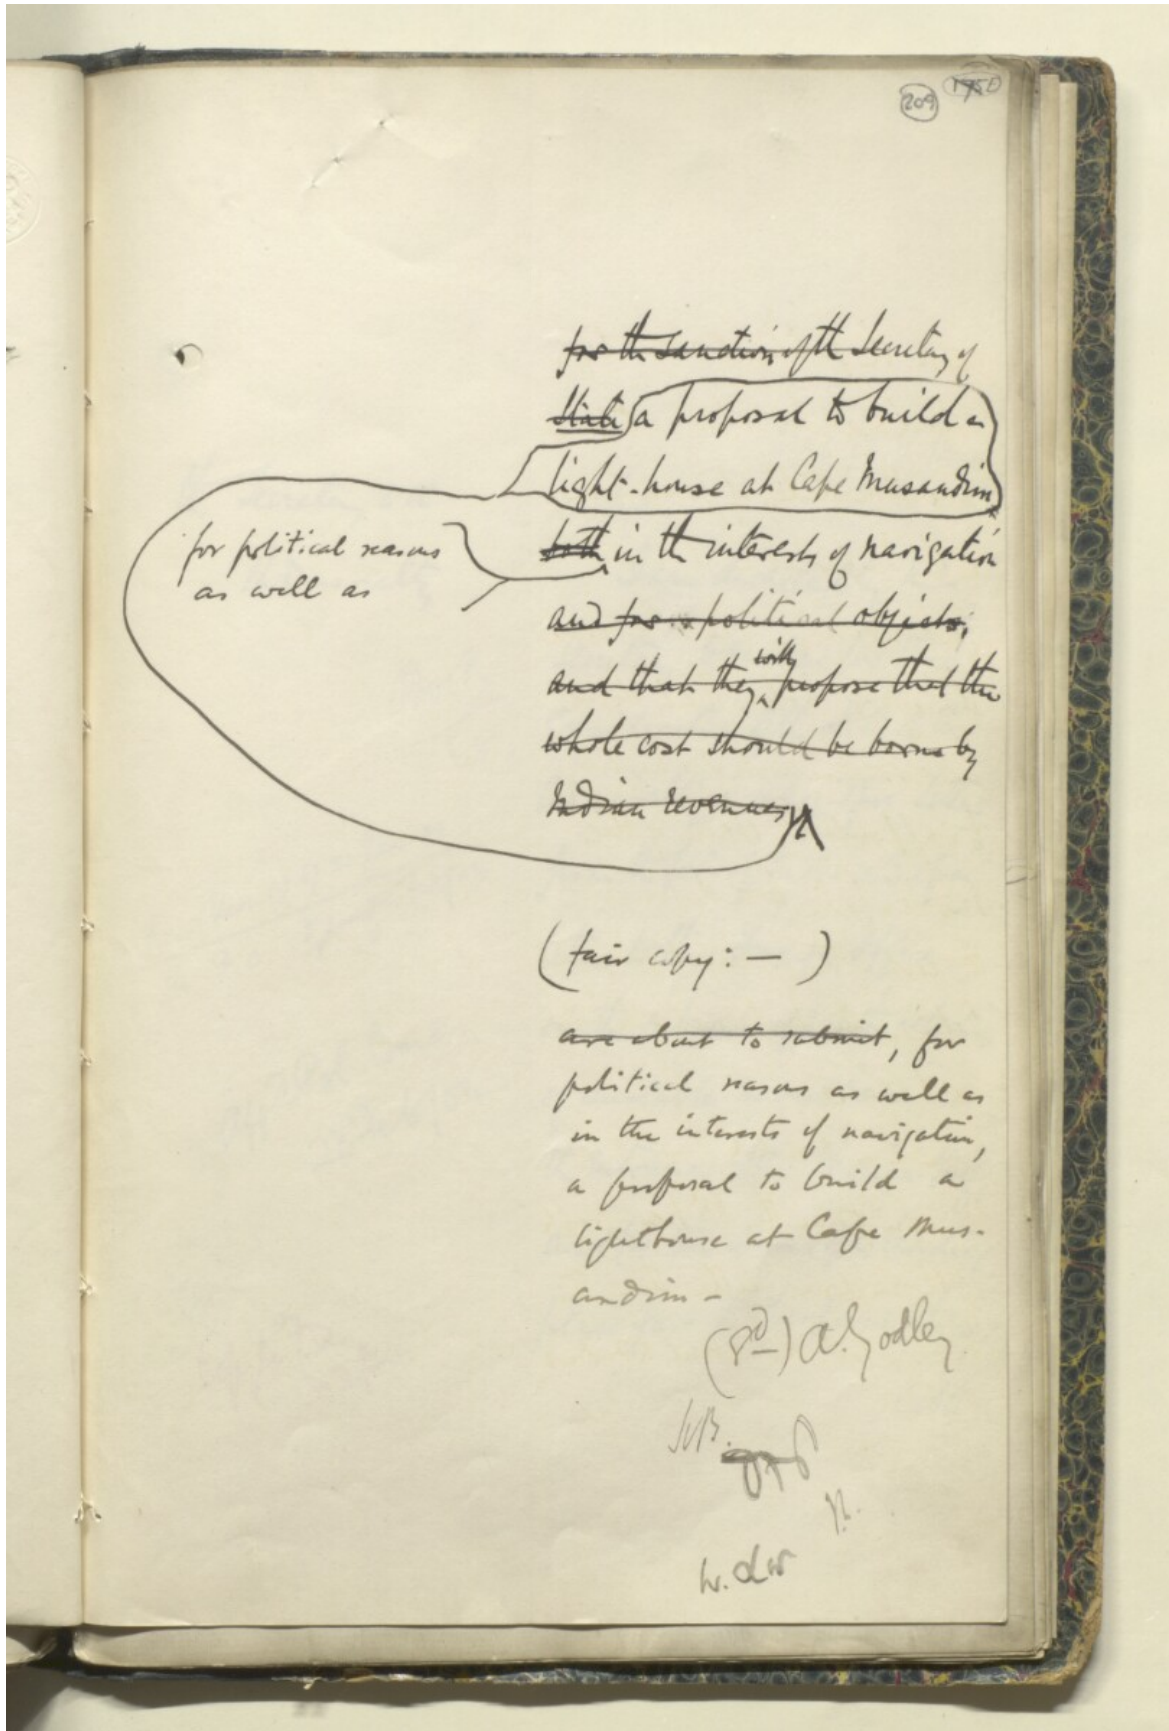 209
for the sanction of the Secretary of
State a proposal to build a
light-house at Cape Musandim
both in the interests of navigation
for political reasons
as well as
and for political objects,
and that they will propose that the
whole cost should be borne by
Indian revenues
(fair copy: — )
are about to submit, for
political reasons as well as
in the interests of navigation,
a proposal to build a
lighthouse at Cape Mus-
andim -
(Sd) A. Godley